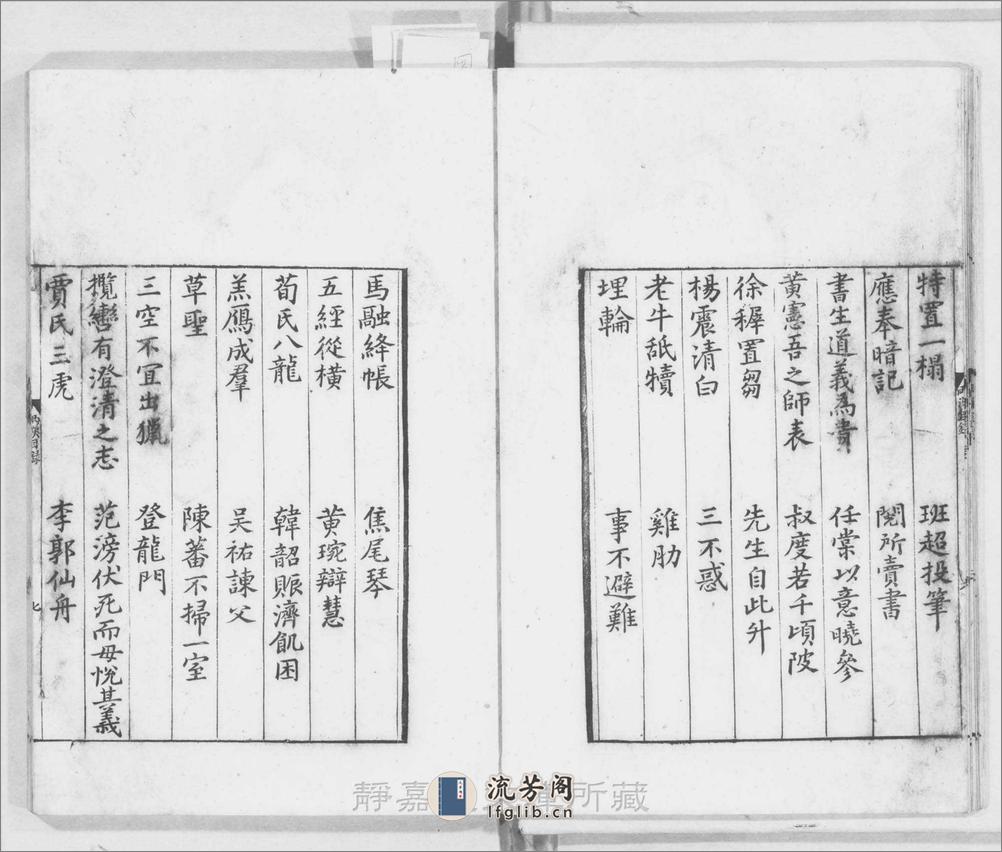 特置一榻 班超投筆
應奉暗記 閱所賣書
書生道義為貴 任棠以意曉參
黄憲吾之師表 叔度若千頃陂
徐穉置芻 先生自此升
楊震清白 三不惑
老牛舐犢 雞肋
埋輪 事不避難
馬融絳帳 焦尾琴
五經從横 黄琬辯慧
荀氏八龍 韓韶賑濟飢困
羔鴈成羣 吴祐諫父
草聖 陳蕃不掃一室
三空不宜出獵 登龍門
攬轡有澄清之志 范滂伏死而母悅其義
賈氏三虎 李郭仙舟
七
靜嘉 所藏
流芳阁
lfglib.cn